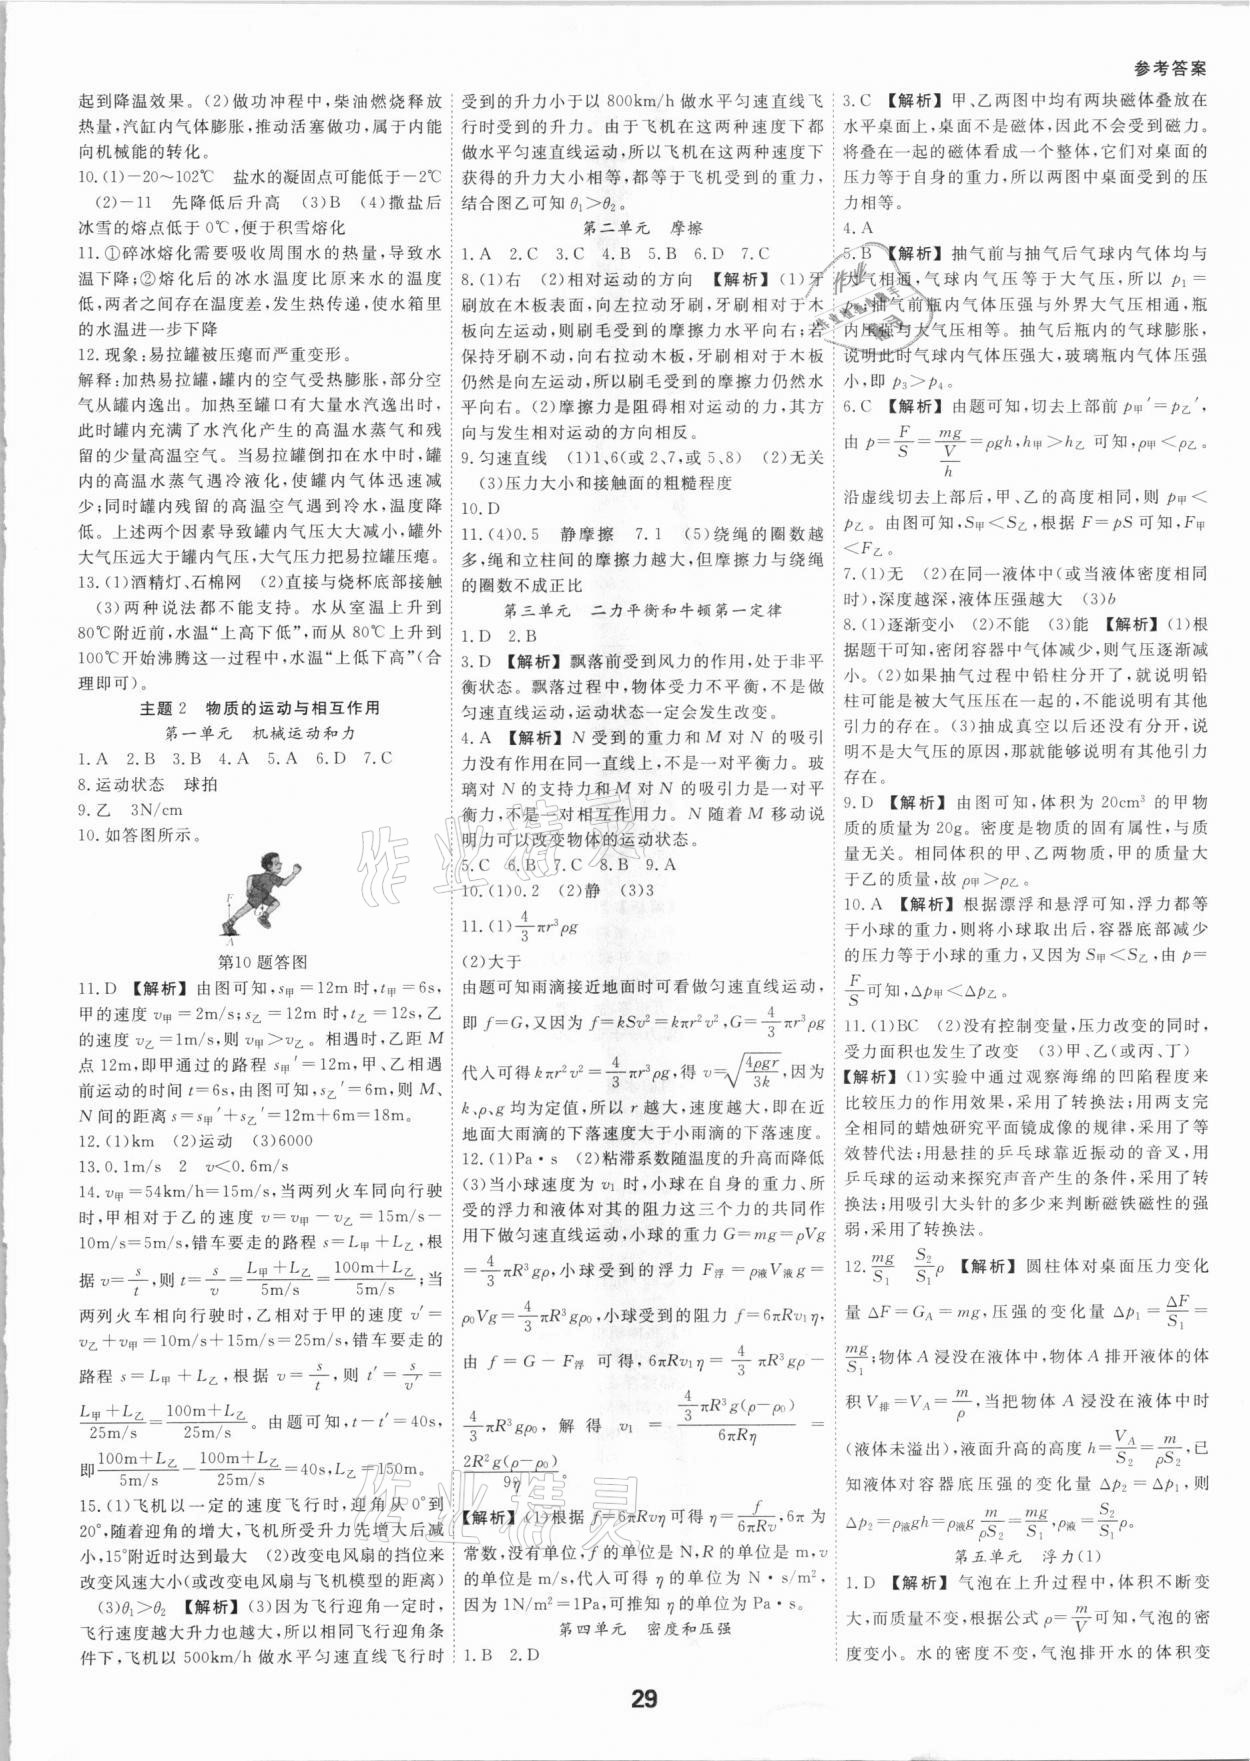 参考答案
起到降温效果。(2)做功冲程中,柴油燃烧释放
热量,汽缸内气体膨胀,推动活塞做功,属于内能
向机械能的转化。
10.(1)-20~102℃ 盐水的凝固点可能低于-2℃
(2)-11 先降低后升高 (3)B (4)撒盐后
冰雪的熔点低于0℃,便于积雪熔化
11.①碎冰熔化需要吸收周围水的热量,导致水
温下降;②熔化后的冰水温度与水箱中水的温度
低,两者之间存在温度差,发生热传递,使水箱里
的水温进一步下降
12.现象:易拉罐被压瘪而严重变形。
解释:加热易拉罐,罐内的空气受热膨胀,部分空
气从罐内逸出。加热至罐口有大量水汽逸出时,
此时罐内充满了水汽化产生的高温水蒸气和残
留的少量高温空气。当易拉罐倒扣在水中时,罐
内的高温水蒸气遇冷液化,使罐内气体迅速减
少;同时罐内残留的高温空气遇到冷水,温度降
低。上述两个因素导致罐内气压大大减小,罐外
大气压远大于罐内气压,大气压力把易拉罐压瘪。
13.(1)酒精灯、石棉网 (2)直接与烧杯底部接触
(3)两种说法都不能支持。水从室温上升到
80℃附近前,水温“上高下低”,而从80℃上升到
100℃开始沸腾这一过程中,水温“上低下高”(合
理即可)。
主题2 物质的运动与相互作用
第一单元 机械运动和力
1.A 2.B 3.B 4.A 5.A 6.D 7.C
8.运动状态 球拍
9.乙 3N/cm
10.如答图所示。
F
G
A
第10题答图
11.D 【解析】由图可知,s甲=12m时,t甲=6s,
甲的速度v甲=2m/s;s乙=12m时,t乙=12s,乙
的速度v乙=1m/s,则v甲>v乙。相遇时,乙距M
点12m,即甲通过的路程s甲′=12m,甲、乙相遇
前运动的时间t=6s,由图可知,s乙′=6m,则M、
N间的距离s=s甲′+s乙′=12m+6m=18m。
12.(1)km (2)运动 (3)6000
13.0.1m/s 2 v<0.6m/s
14.v甲=54km/h=15m/s,当两列火车同向行驶
时,甲相对于乙的速度v=v甲-v乙=15m/s-
10m/s=5m/s,错车要走的路程s=L甲+L乙,根
据v=s/t,则t=s/v=(L甲+L乙)/(5m/s)=(100m+L乙)/(5m/s);当
两列火车相向行驶时,乙相对于甲的速度v′=
v乙+v甲=10m/s+15m/s=25m/s,错车要走的
路程s=L甲+L乙,根据v=s/t,则t′=s/v′=
(L甲+L乙)/(25m/s)=(100m+L乙)/(25m/s)。由题可知,t-t′=40s,
即(100m+L乙)/(5m/s)-(100m+L乙)/(25m/s)=40s,L乙=150m。
15.(1)飞机以一定的速度飞行时,迎角从0°到
20°,随着迎角的增大,飞机所受升力先增大后减
小,15°附近时达到最大 (2)改变电风扇的挡位来
改变风速大小(或改变电风扇与飞机模型的距离)
(3)θ₁>θ₂ 【解析】(3)因为飞行迎角一定时,
飞行速度越大升力也越大,所以飞行迎角等条
件下,飞机以500km/h做水平匀速直线飞行时
受到的升力小于以800km/h做水平匀速直线飞
行时受到的升力。由于飞机在这两种速度下都
做水平匀速直线运动,所以飞机在这两种速度下
获得的升力大小相等,都等于飞机受到的重力,
结合图乙可知θ₁>θ₂。
第二单元 摩擦
1.A 2.C 3.C 4.B 5.B 6.D 7.C
8.(1)右 (2)相对运动的方向 【解析】(1)牙
刷放在木板表面,向左拉动牙刷,牙刷相对于木
板向左运动,则刷毛受到的摩擦力水平向右;若
保持牙刷不动,向右拉动木板,牙刷相对于木板
仍然是向左运动,所以刷毛受到的摩擦力仍然水
平向右。(2)摩擦力是阻碍相对运动的力,其方
向与发生相对运动的方向相反。
9.匀速直线 (1)1、6(或2、7,或5、8) (2)无关
(3)压力大小和接触面的粗糙程度
10.D
11.(4)0.5 静摩擦 7.1 (5)绕绳的圈数越
多,绳和立柱间的摩擦力越大,但摩擦力与绕绳
的圈数不成正比
第三单元 二力平衡和牛顿第一定律
1.D 2.B
3.D 【解析】飘落前受到风力的作用,处于非平
衡状态。飘落过程中,物体受力不平衡,不是做
匀速直线运动,运动状态一定会发生改变。
4.A 【解析】N受到的重力和M对N的吸引
力没有作用在同一直线上,不是一对平衡力。玻
璃对N的支持力和M对N的吸引力是一对平
衡力,不是一对相互作用力。N随着M移动说
明力可以改变物体的运动状态。
5.C 6.B 7.C 8.B 9.A
10.(1)0.2 (2)静 (3)3
11.(1)4/3πr³ρg
(2)大于
由题可知雨滴接近地面时可看做匀速直线运动,
即f=G,又因为f=kSv²=kπr²v²,G=4/3πr³ρg
代入可得kπr²v²=4/3πr³ρg,得v=√(4ρgr/3k),因为
k、ρ、g均为定值,所以r越大,速度越大,即在近
地面大雨滴的下落速度大于小雨滴的下落速度。
12.(1)Pa·s (2)粘滞系数随温度的升高而降低
(3)当小球速度为v₁时,小球在自身的重力、所
受的浮力和液体对其的阻力这三个力的共同作
用下做匀速直线运动,小球的重力G=mg=ρVg
=4/3πR³gρ,小球受到的浮力F浮=ρ液V液g=
ρ₀Vg=4/3πR³gρ₀,小球受到的阻力f=6πRv₁η,
由f=G-F浮可得,6πRv₁η=4/3πR³gρ-
4/3πR³gρ₀,解得v₁=(4/3πR³g(ρ-ρ₀))/(6πRη)=
2R²g(ρ-ρ₀)/9η。
【解析】(1)根据f=6πRvη可得η=f/(6πRv),6π为
常数,没有单位,f的单位是N,R的单位是m,v
的单位是m/s,代入可得η的单位是N·s/m²,
因为1N/m²=1Pa,可推知η的单位是Pa·s。
第四单元 密度和压强
1.B 2.D
3.C 【解析】甲、乙两图中均有两块磁体叠放在
水平桌面上,桌面不是磁体,因此不会受到磁力。
将叠在一起的磁体看成一个整体,它们对桌面的
压力等于自身的重力,所以两图中桌面受到的压
力相等。
4.A
5.B 【解析】抽气前与抽气后气球内气体均与
大气相通,气球内气压等于大气压,所以p₁=
p₂。抽气前瓶内气体压强与外界大气压相通,瓶
内压强与大气压相等。抽气后瓶内的气球膨胀,
说明此时气球内气体压强大,玻璃瓶内气体压强
小,即p₃>p₄。
6.C 【解析】由题可知,切去上部前p甲′=p乙′,
由p=F/S=mg/(V/h)=ρgh,h甲>h乙可知,ρ甲<ρ乙。
沿虚线切去上部后,甲、乙的高度相同,则p甲<
p乙。由图可知,S甲<S乙,根据F=pS可知,F甲
<F乙。
7.(1)无 (2)在同一液体中(或当液体密度相同
时),深度越深,液体压强越大 (3)b
8.(1)逐渐变小 (2)不能 (3)能 【解析】(1)根
据题干可知,密闭容器中气体减少,则气压逐渐减
小。(2)如果抽气过程中铅柱分开了,就说明铅
柱可能是被大气压压在一起的,不能说明有其他
引力的存在。(3)抽成真空以后还没有分开,说
明不是大气压的原因,那就能够说明有其他引力
存在。
9.D 【解析】由图可知,体积为20cm³的甲物
质的质量为20g。密度是物质的固有属性,与质
量无关。相同体积的甲、乙两物质,甲的质量大
于乙的质量,故ρ甲>ρ乙。
10.A 【解析】根据漂浮和悬浮可知,浮力都等
于小球的重力,则将小球取出后,容器底部减少
的压力等于小球的重力,又因为S甲<S乙,由p=
F/S可知,Δp甲<Δp乙。
11.(1)BC (2)没有控制变量,压力改变的同时,
受力面积也发生了改变 (3)甲、乙(或丙、丁)
【解析】(1)实验中通过观察海绵的凹陷程度来
比较压力的作用效果,采用了转换法;用两支完
全相同的蜡烛研究平面镜成像的规律,采用了等
效替代法;用悬挂的乒乓球靠近振动的音叉,用
乒乓球的运动来探究声音产生的条件,采用了转
换法;用吸引大头针的多少来判断磁铁磁性的强
弱,采用了转换法。
12.mg/S₁ S₂/S₁ρ 【解析】圆柱体对桌面压力变化
量ΔF=G_A=mg,压强的变化量Δp₁=ΔF/S₁=
mg/S₁;物体A浸没在液体中,物体A排开液体的体
积V排=V_A=m/ρ,当把物体A浸没在液体中时
(液体未溢出),液面升高的高度h=V_A/S₂=m/ρS₂,已
知液体对容器底压强的变化量Δp₂=Δp₁,则
Δp₂=ρ液gh=ρ液g m/ρS₂=mg/S₁,ρ液=S₂/S₁ρ。
第五单元 浮力(1)
1.D 【解析】气泡在上升过程中,体积不断变
大,而质量不变,根据公式ρ=m/V可知,气泡的密
度变小。水的密度不变,气泡排开水的体积变
29
作业精灵
作业精灵